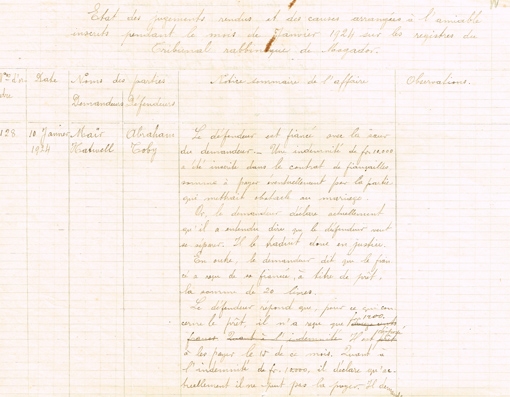 Etat des jugements rendus et des causes arrangées à l'amiable
inscrits pendant le mois de Janvier 1924 sur les registres du
Tribunal rabbinique de Mogador.
Date
Noms des parties
Notice sommaire de l'affaire
Observations
Demandeurs Défendeurs
128
10 Janvier
1924
Mair
Abraham
Toby
Le défendeur est fiancé avec la sœur
du demandeur. Une indemnité de fr. 10,000
a été inscrite dans le contrat de fiançailles
comme à payer éventuellement par la partie
qui mettrait obstacle au mariage.
Or, le demandeur déclare actuellement
qu'il a entendu dire que le défendeur veut
se séparer. Il le traduit donc en justice.
En outre, le demandeur dit que le fian
cé a reçu de sa fiancée, à titre de prêt,
la somme de 20 livres.
Le défendeur répond que, pour ce qui con
cerne le prêt, il n'a reçu que
fr. 1200.
francs Quant à l'indemnité Il est
à les payer le 15 de ce mois. Quant à
l'indemnité de fr. 10000, il déclare qu'ac
tuellement il ne peut pas la payer. Il